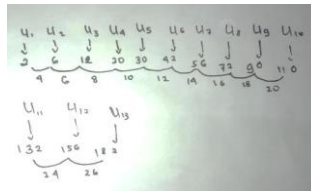 U₁ U₂ U₃ U₄ U₅ U₆ U₇ U₈ U₉ U₁₀
2 6 12 20 30 42 56 72 90 110
4 6 8 10 12 14 16 18 20
U₁₁ U₁₂ U₁₃
132 156 182
24 26